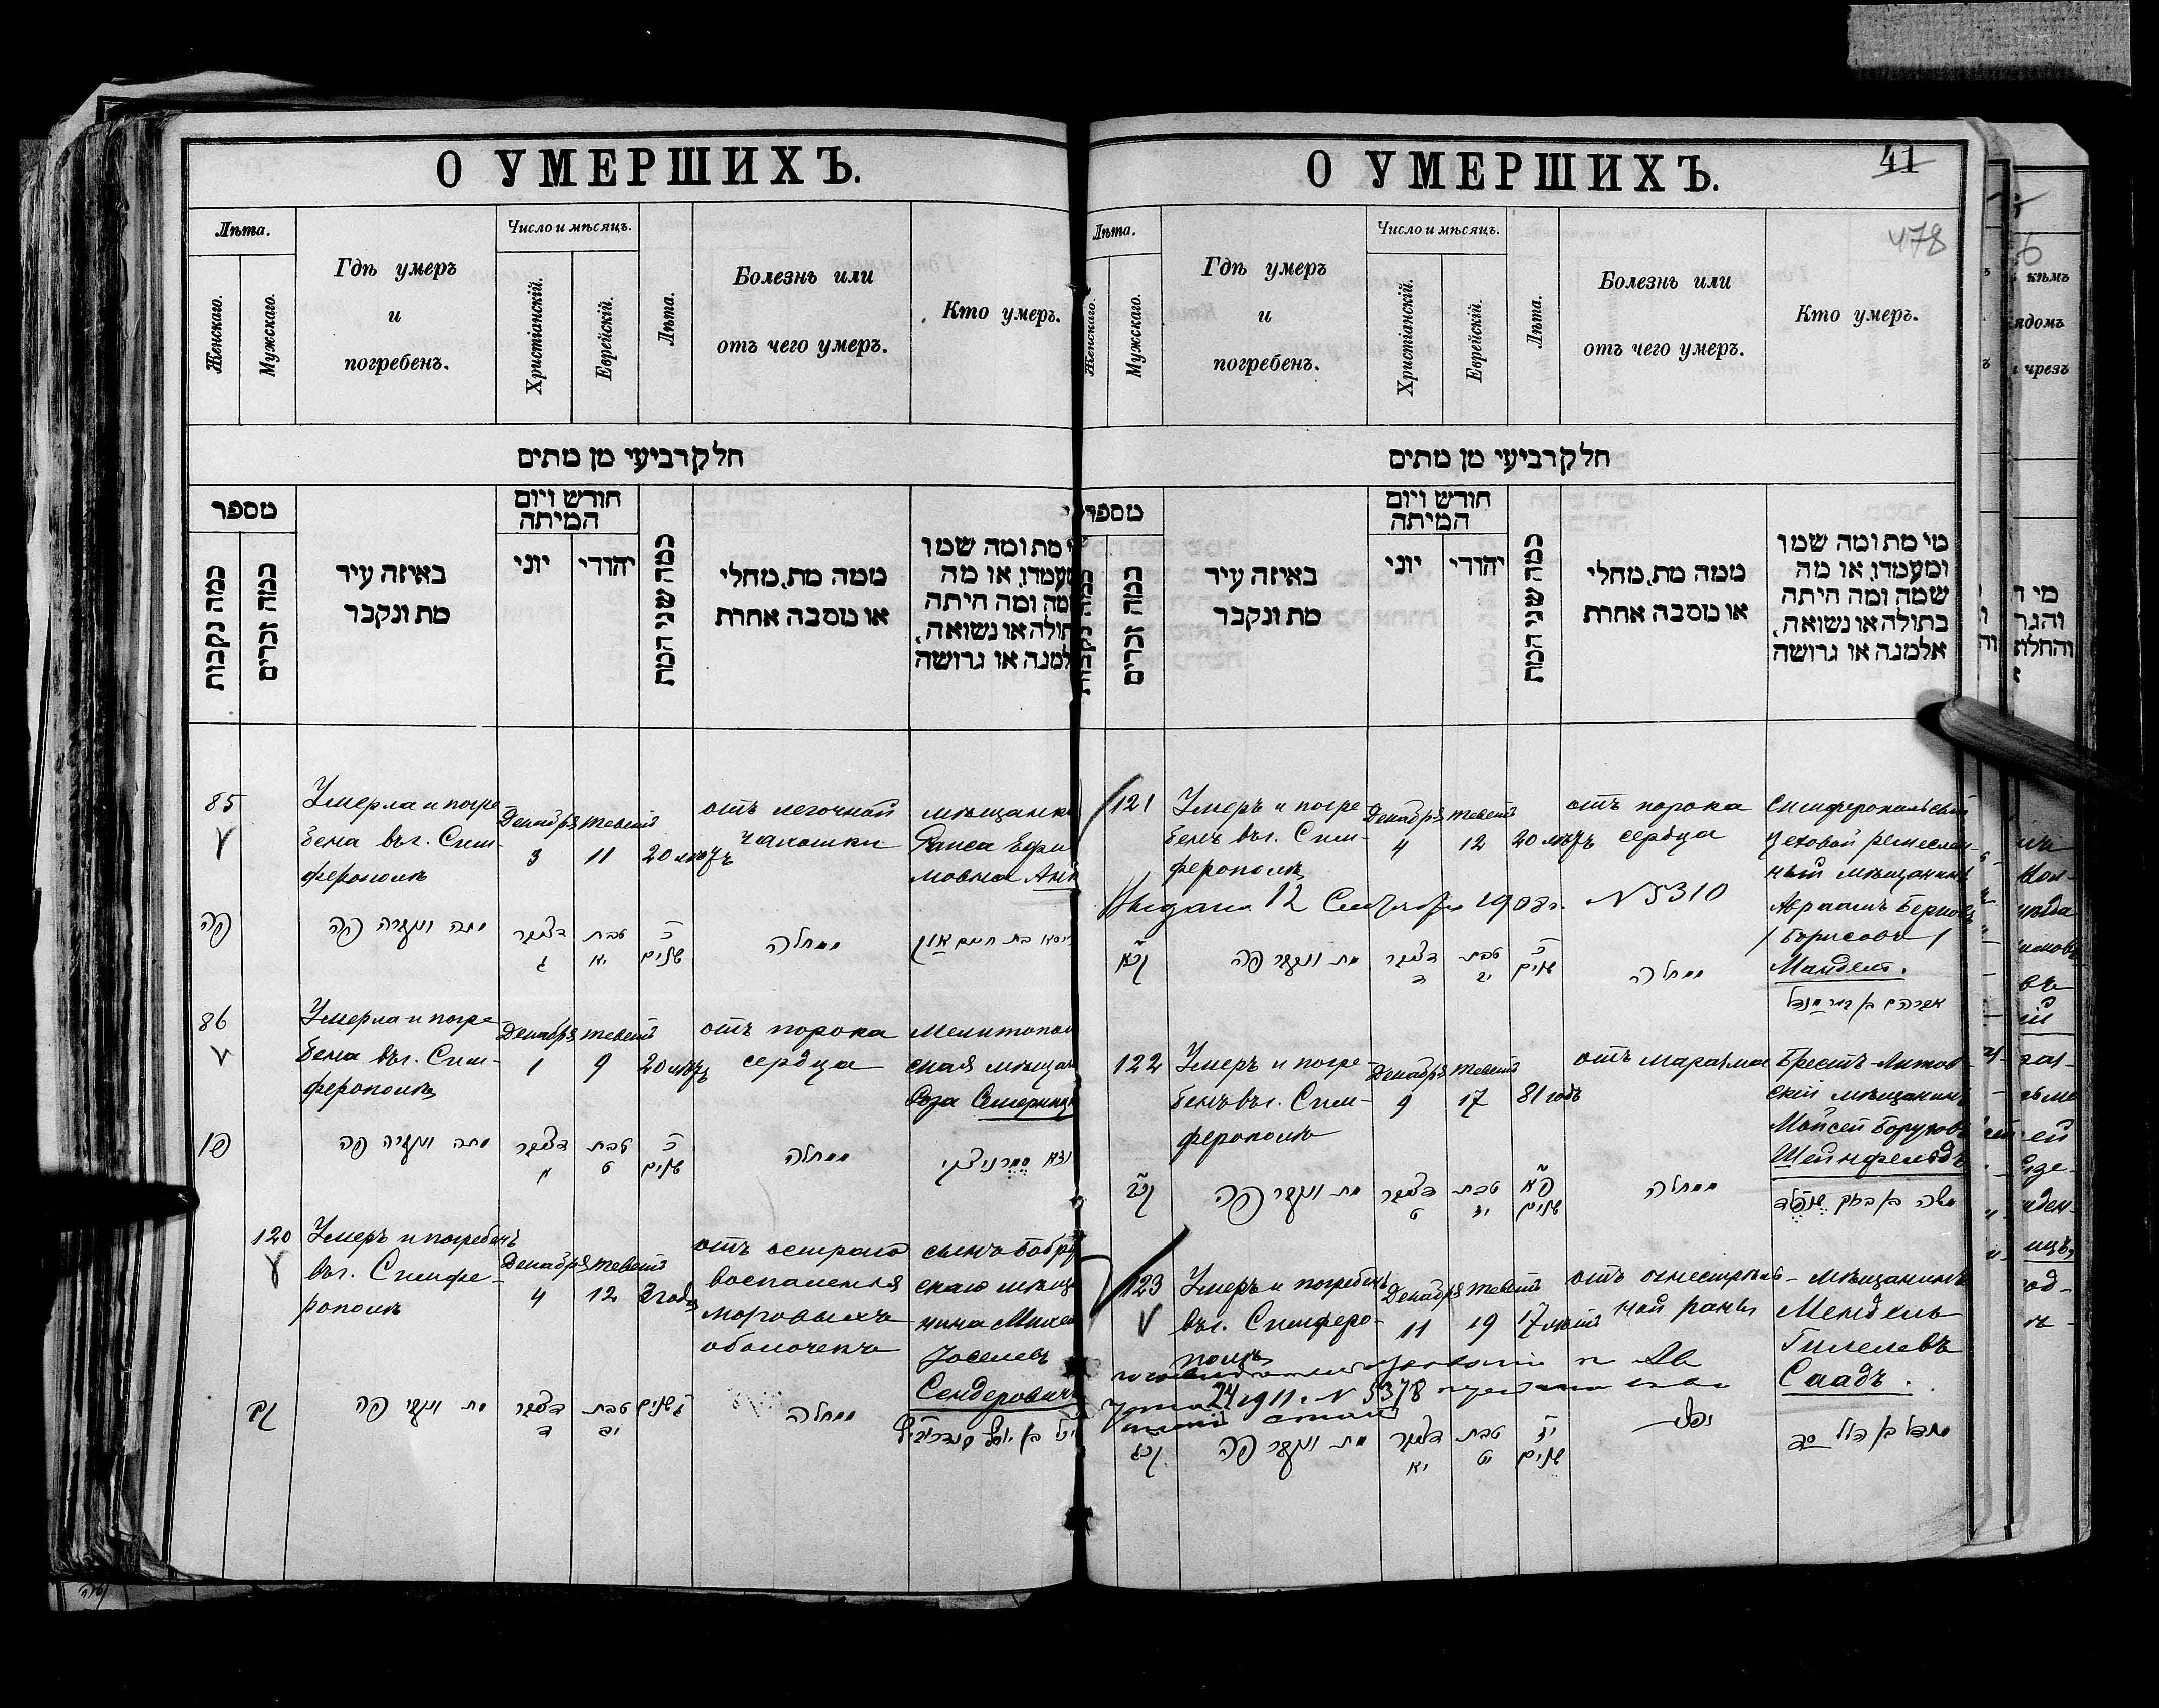 О УМЕРШИХЪ.
Лѣта.
Женскаго.
Мужскаго.
Гдѣ умеръ
и
погребенъ.
Число и мѣсяцъ.
Христіанскій.
Еврейскій.
Лѣта.
Болезнь или
отъ чего умеръ.
Кто умеръ.
חלק רביעי מן מתים
מספר
כמה נקבות
כמה זכרים
באיזה עיר
מת ונקבר
חודש ויום
המיתה
יוני
יהודי
כמה שני המת
ממה מת, מחלי
או מסבה אחרת
מת ומה שמו
ומעמדו, או מה
שמה ומה היתה
בתולה או נשואה,
אלמנה או גרושה
85
Умерла и погре
бена въ г. Сим-
ферополѣ
Декабря
3
Теветъ
11
20 лѣтъ
отъ легочной
чахотки
мѣщанка
Раиса Ефи
мовна
פה
מתה ונקברה פה
דעצעמבר
ג
טבת
יא
כ
שנים
ממחלה
86
Умерла и погре
бена въ г. Сим-
ферополѣ
Декабря
1
Тевет
9
20 лѣтъ
отъ порока
сердца
Мелитополь
ская мѣщан
Роза
פו
מתה ונקברה פה
דעצעמבר
א
טבת
ט
כ
שנים
ממחלה
120
Умеръ и погребенъ
въ г. Симфе-
рополѣ
Декабря
4
Тевет
12
3 года
отъ остраго
воспаленія
мозговыхъ
оболочекъ
сынъ Бобруй
скаго мѣща
нина
Іоселевъ
Сендеровичъ
קכ
מת ונקבר פה
דעצעמבר
ד
טבת
יב
ג שנים
ממחלה
О УМЕРШИХЪ.
41
478
Лѣта.
Женскаго.
Мужскаго.
Гдѣ умеръ
и
погребенъ.
Число и мѣсяцъ.
Христіанскій.
Еврейскій.
Лѣта.
Болезнь или
отъ чего умеръ.
Кто умеръ.
חלק רביעי מן מתים
מספר
כמה זכרים
באיזה עיר
מת ונקבר
חודש ויום
המיתה
יוני
יהודי
כמה שני המת
ממה מת, מחלי
או מסבה אחרת
מי מת ומה שמו
ומעמדו, או מה
שמה ומה היתה
בתולה או נשואה,
אלמנה או גרושה
121
Умеръ и погре
бенъ въ г. Сим-
ферополѣ
Декабря
4
Тевет
12
20 лѣтъ
отъ порока
сердца
Симферопольскій
цеховой ремеслен-
ный мѣщанинъ
Авраамъ Берковъ
/Борисовъ/
Мандель.
Выдано 12 Сентября 1908 г. № 5310
קכא
מת ונקבר פה
דעצעמבר
ד
טבת
יב
כ
שנים
ממחלה
אברהם בן בער מנדל
122
Умеръ и погре
бенъ въ г. Сим-
ферополѣ
Декабря
9
Тевет
17
81 годъ
отъ маразма
Брестъ-Литов
скій мѣщанинъ
Мойсей Боруховъ
Шейнфельдъ
קכב
מת ונקבר פה
דעצעמבר
ט
טבת
יז
פא
שנים
ממחלה
משה בן ברוך שנפלד
123
Умеръ и погребенъ
въ г. Симферо-
полѣ
Декабря
11
Тевет
19
17 лѣтъ
отъ огнестрѣль-
ной раны
мѣщанинъ
Мендель
Гилелевъ
Саадъ.
24 1911. № 5378
קכג
מת ונקבר פה
דעצעמבר
יא
טבת
יט
יז
שנים